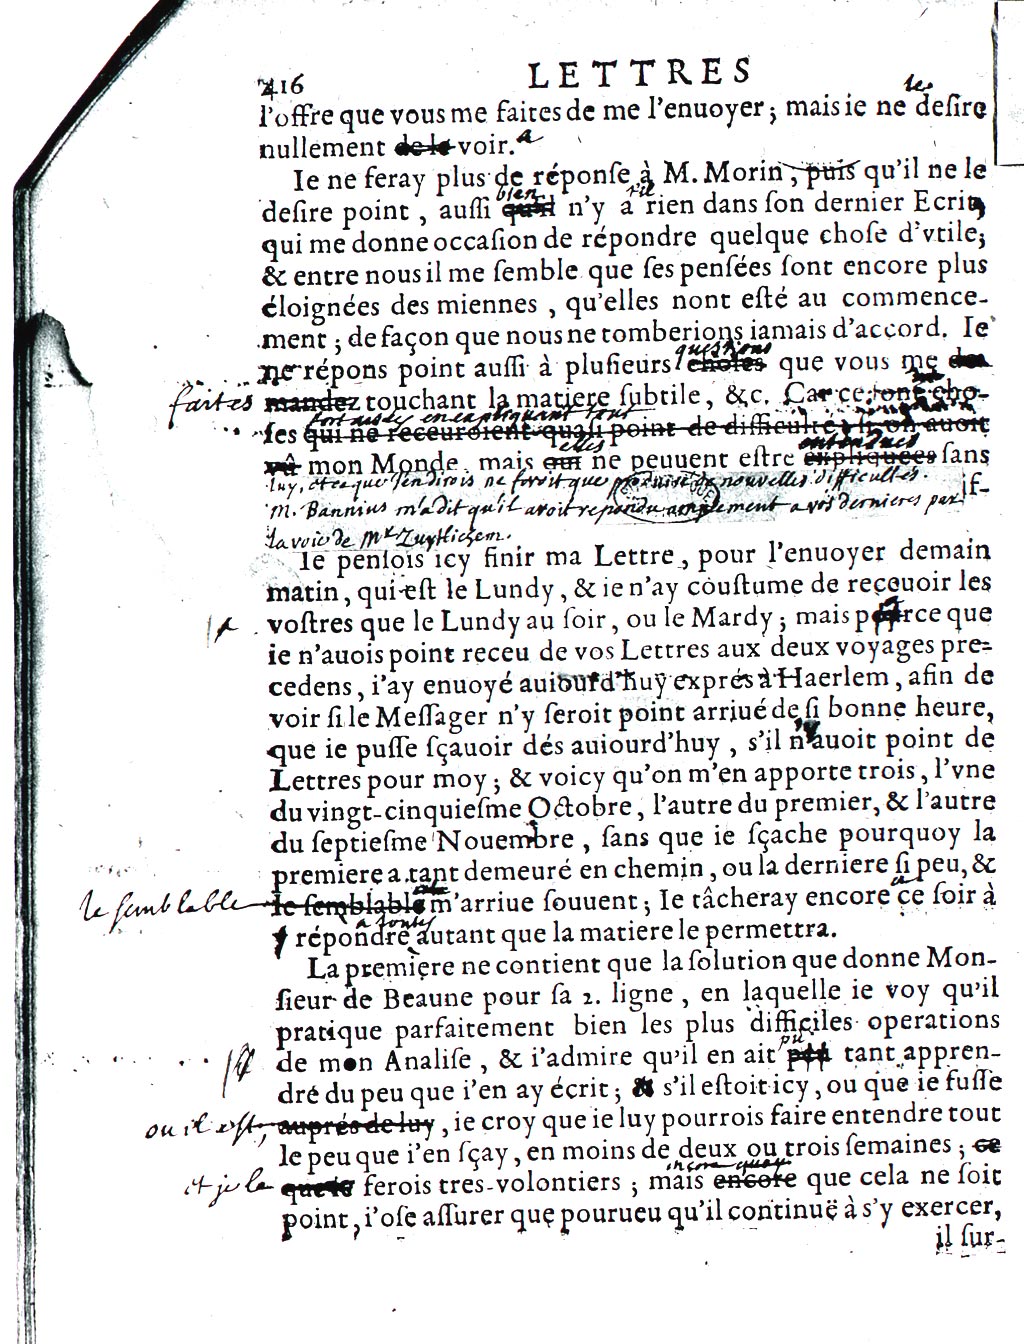 416 LETTRES
les
l'offre que vous me faites de me l'enuoyer; mais ie ne deſire
nullement de le voir. a
Ie ne feray plus de réponſe à M. Morin, puis qu'il ne le
bien s'il
deſire point, auſſi qu'il n'y a rien dans ſon dernier Ecrit,
qui me donne occaſion de répondre quelque choſe d'vtile;
& entre nous il me ſemble que ſes penſées ſont encore plus
éloignées des miennes, qu'elles nont eſté au commence-
ment; de façon que nous ne tomberions iamais d'accord. Ie
questions
ne répons point auſſi à pluſieurs choſes que vous me de-
faites mandez touchant la matiere ſubtile, &c. Car ce ſont cho-
fort aisées en expliquant tout
ſes qui ne receuroient quaſi point de difficulté ſi on auoit
elles entendues
vû mon Monde, mais qui ne peuuent eſtre expliquées ſans
luy, et ce que j'en dirois ne feroit que produire de nouvelles difficultés.
if-
M. Bannius m'a dit qu'il avoit repondu amplement a vos dernieres par
la voie de Mr Zuytlichem.
Ie penſois icy finir ma Lettre, pour l'enuoyer demain
matin, qui eſt le Lundy, & ie n'ay couſtume de receuoir les
voſtres que le Lundy au ſoir, ou le Mardy; mais parce que
ie n'auois point receu de vos Lettres aux deux voyages pre-
cedens, i'ay enuoyé auiourd'huy exprés à Haerlem, afin de
voir ſi le Meſſager n'y ſeroit point arriué de ſi bonne heure,
'y
que ie puſſe ſçauoir dés auiourd'huy, s'il n'auoit point de
Lettres pour moy; & voicy qu'on m'en apporte trois, l'vne
du vingt-cinquieſme Octobre, l'autre du premier, & l'autre
du ſeptieſme Nouembre, ſans que ie ſçache pourquoy la
premiere a tant demeuré en chemin, ou la derniere ſi peu, &
le semblable le ſemblable m'arriue ſouuent; Ie tâcheray encore ce ſoir à
a toutes
y répondre autant que la matiere le permettra.
La premiere ne contient que la ſolution que donne Mon-
ſieur de Beaune pour ſa 2. ligne, en laquelle ie voy qu'il
pratique parfaitement bien les plus difficiles operations
pu
de mon Analiſe, & i'admire qu'il en ait pû tant appren-
dre du peu que i'en ay écrit; & s'il eſtoit icy, ou que ie fuſſe
ou il est, auprés de luy, ie croy que ie luy pourrois faire entendre tout
le peu que i'en ſçay, en moins de deux ou trois ſemaines; ce
encore quoy
et je le que ie ferois tres-volontiers; mais encore que cela ne ſoit
point, i'oſe aſſurer que pourueu qu'il continuë à s'y exercer,
il ſur-